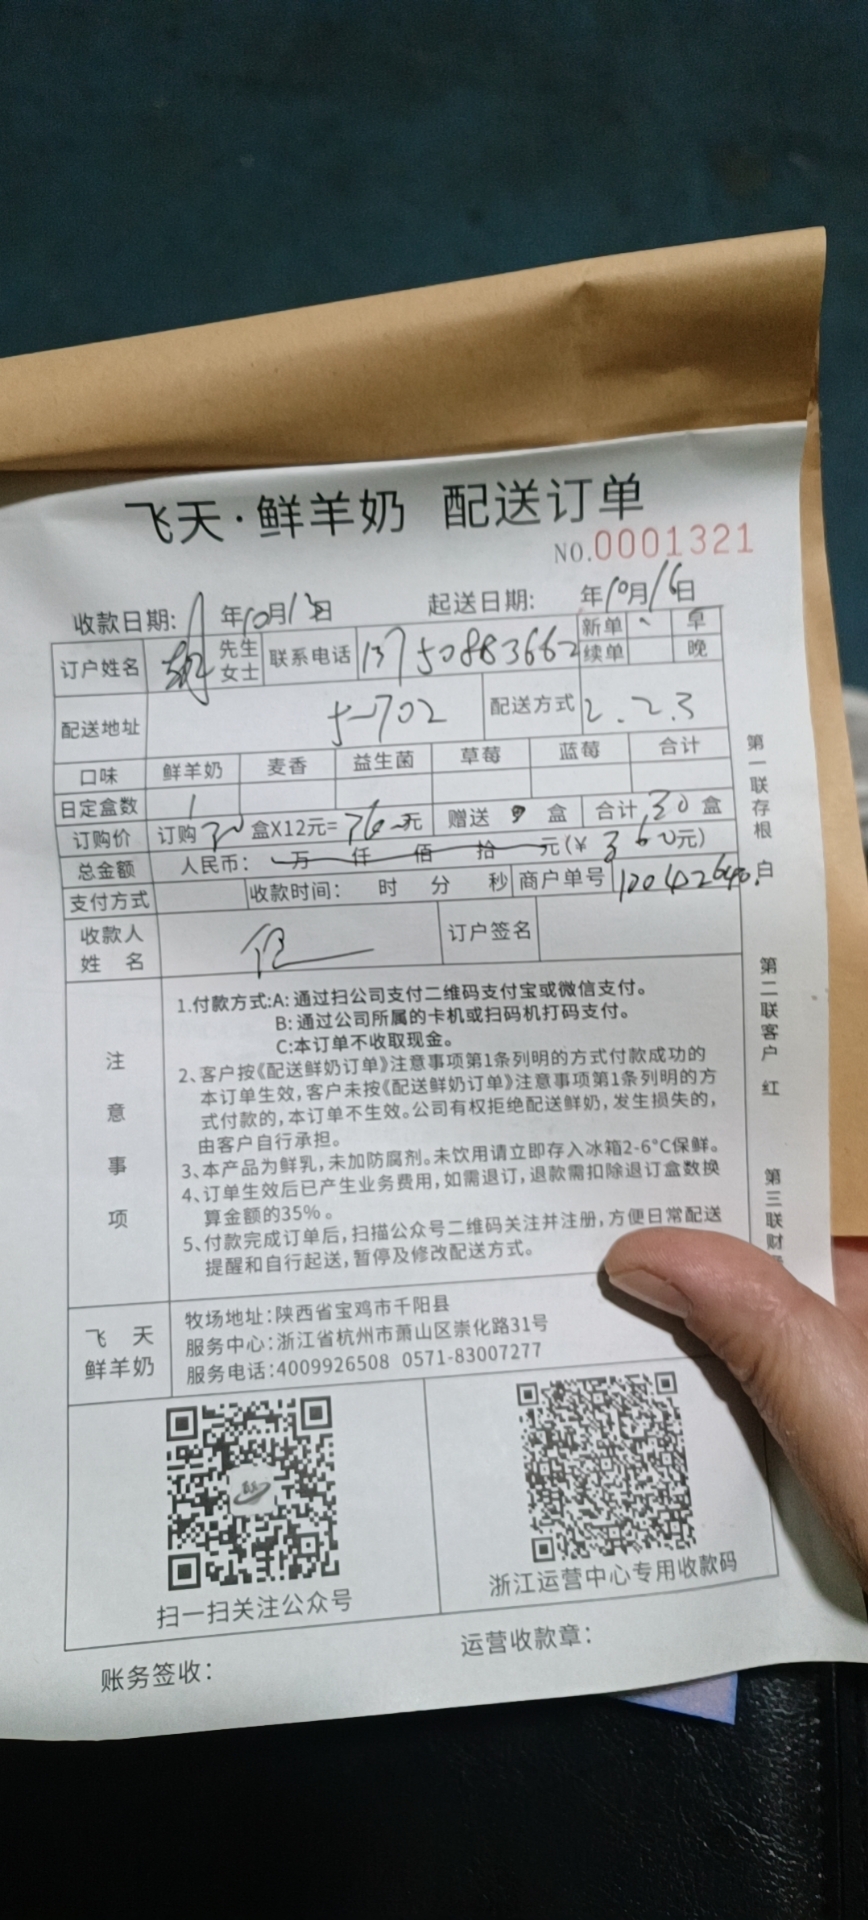 飞天·鲜羊奶 配送订单
NO.0001321
收款日期: 年10月13日 起送日期: 年10月16日
订户姓名 胡 先生 女士 联系电话 13750883662 新单 、 早
续单 晚
配送地址 5-702 配送方式 2.2.3
口味 鲜羊奶 麦香 益生菌 草莓 蓝莓 合计
日定盒数 1
订购价 订购30盒X12元= 元 赠送 盒 合计30盒
总金额 人民币: 万 仟 佰 拾 元(¥360元)
支付方式 收款时间: 时 分 秒 商户单号
收款人姓名 订户签名
注意事项
1.付款方式:A:通过扫公司支付二维码支付宝或微信支付。
B:通过公司所属的卡机或扫码机打码支付。
C:本订单不收取现金。
2、客户按《配送鲜奶订单》注意事项第1条列明的方式付款成功的
本订单生效,客户未按《配送鲜奶订单》注意事项第1条列明的方
式付款的,本订单不生效。公司有权拒绝配送鲜奶,发生损失的,
由客户自行承担。
3、本产品为鲜乳,未加防腐剂。未饮用请立即存入冰箱2-6°C保鲜。
4、订单生效后已产生业务费用,如需退订,退款需扣除退订盒数换
算金额的35%。
5、付款完成订单后,扫描公众号二维码关注并注册,方便日常配送
提醒和自行起送,暂停及修改配送方式。
飞天
鲜羊奶
牧场地址:陕西省宝鸡市千阳县
服务中心:浙江省杭州市萧山区崇化路31号
服务电话:4009926508 0571-83007277
扫一扫关注公众号
浙江运营中心专用收款码
账务签收:
运营收款章:
第一联存根 白
第二联客户 红
第三联财